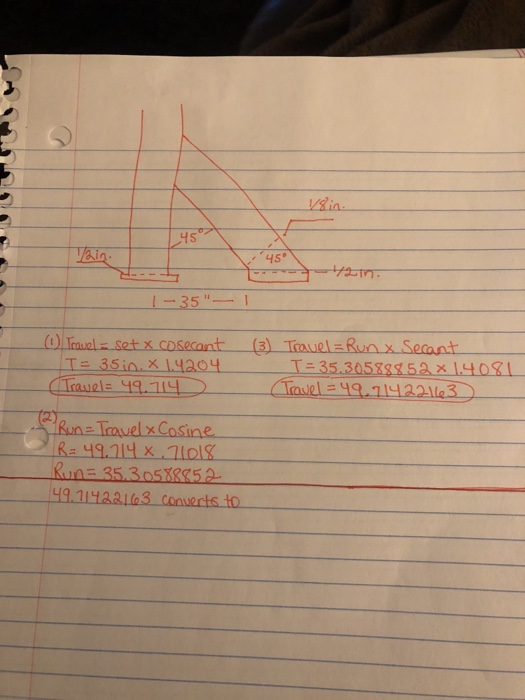 1/8in.
45°
45°
1/2in.
1/2in.
1-35"-1
(1) Travel = set x cosecant
T = 35in. x 1.4204
Travel = 49.714
(3) Travel = Run x Secant
T = 35.30588852 x 1.4081
Travel = 49.71422163
(2) Run = Travel x Cosine
R = 49.714 x .71018
Run = 35.30588852
49.71422163 converts to